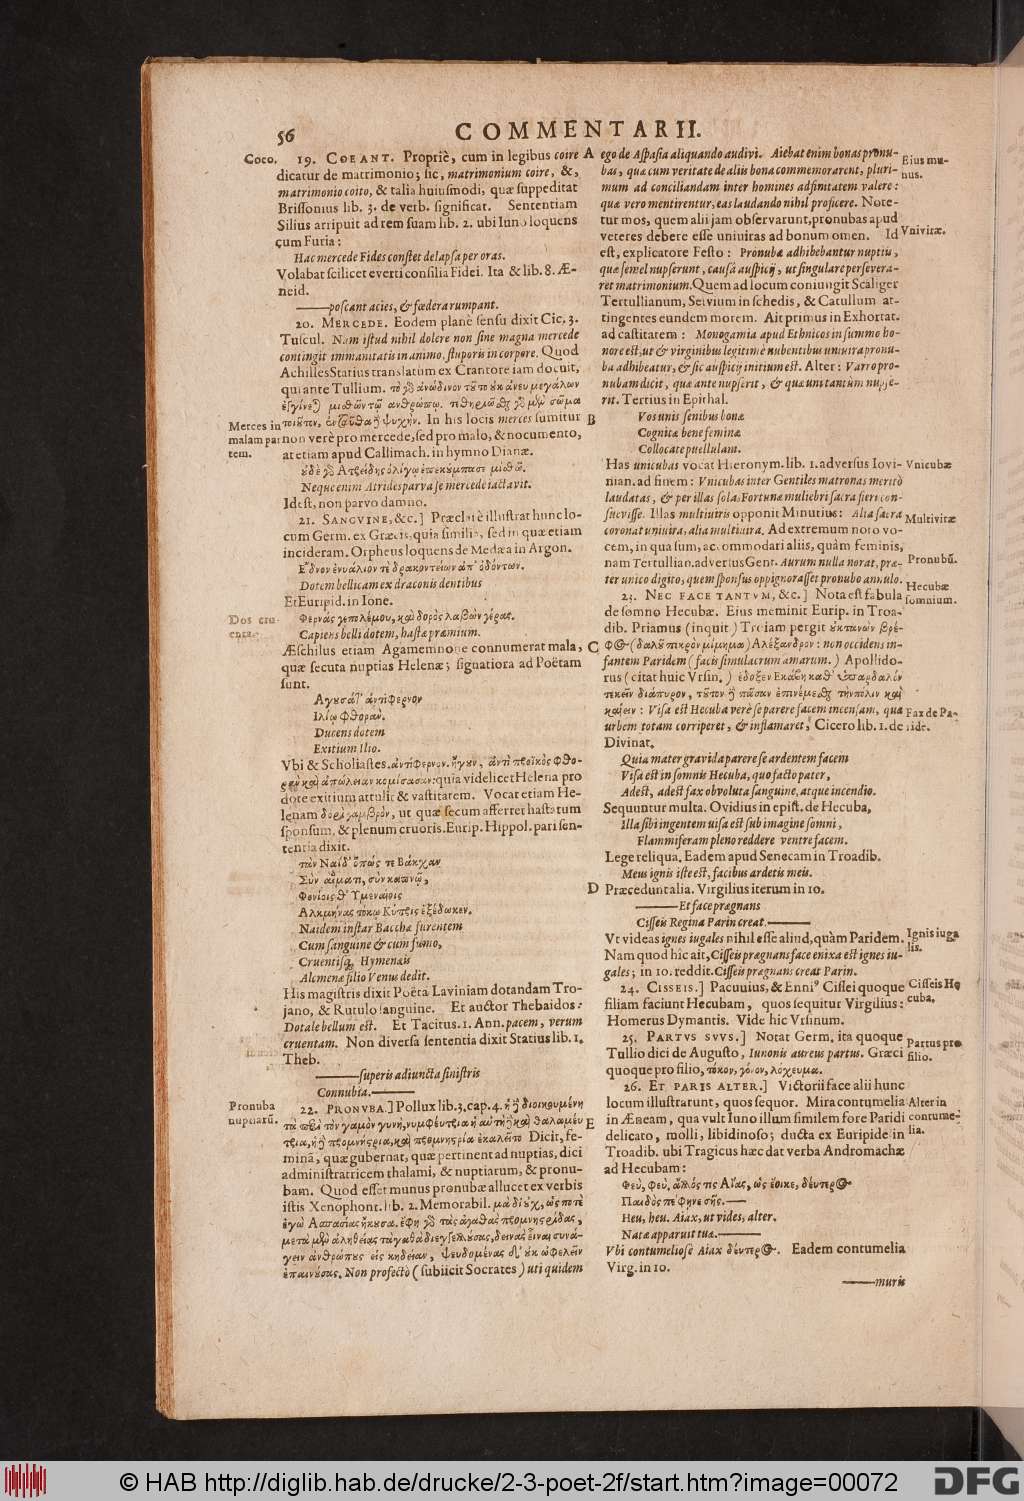 56
COMMENTARII.
Coeo.
19. COEANT. Propriè, cum in legibus coire
dicatur de matrimonio; sic, matrimonium coire, &,
matrimonio coito, & talia huiusmodi, quæ suppeditat
Brissonius lib. 3. de verb. significat. Sententiam
Silius arripuit ad rem suam lib. 2. ubi Iuno loquens
cum Furia:
Hac mercede Fides constet delapsa per oras.
Volabat scilicet everti consilia Fidei. Ita & lib. 8. Æ-
neid.
——poscant acies, & fœdera rumpant.
20. MERCEDE. Eodem planè sensu dixit Cic. 3.
Tuscul. Nam istud nihil dolere non sine magna mercede
contingit immanitatis in animo, stuporis in corpore. Quod
Achilles Statius translatum ex Crantore iam docuit,
qui ante Tullium.
Merces in
malam par
tem.
In his locis merces sumitur
non verè pro mercede, sed pro malo, & nocumento,
at etiam apud Callimach. in hymno Dianæ.
Neque enim Atrides parva se mercede iactavit.
Idest, non parvo damno.
21. SANGVINE, &c.] Præclarè illustrat hunc lo-
cum Germ. ex Græcis, quia similia, sed in quæ etiam
incideram. Orpheus loquens de Medæa in Argon.
Dotem bellicam ex draconis dentibus
Et Euripid. in Ione.
Dos cru
enta.
Capiens belli dotem, hastæ præmium.
Æschilus etiam Agamemnone connumerat mala,
quæ secuta nuptias Helenæ; signatiora ad Poëtam
sunt.
Ἰλίῳ φθοράν.
Ducens dotem
Exitium Ilio.
Vbi & Scholiastes. quia videlicet Helena pro
dote exitium attulit & vastitatem. Vocat etiam He-
lenam ut quæ secum afferret hastatum
sponsum, & plenum cruoris. Eurip. Hippol. pari sen-
tentia dixit.
Naidem instar Bacchæ furentem
Cum sanguine & cum fumo,
Cruentisq; Hymenæis
Alcmenæ filio Venus dedit.
His magistris dixit Poëta Laviniam dotandam Tro-
jano, & Rutulo sanguine. Et auctor Thebaidos:
Dotale bellum est. Et Tacitus. 1. Ann. pacem, verum
cruentam. Non diversa sententia dixit Statius lib. 1.
Theb.
——superis adiuncta sinistris
Connubia.——
Pronuba
nuptiarũ.
22. PRONVBA.] Pollux lib. 3. cap. 4.
Dicit, fe-
minā, quæ gubernat, quæ pertinent ad nuptias, dici
administratricem thalami, & nuptiarum, & pronu-
bam. Quod esset munus pronubæ allucet ex verbis
istis Xenophont. lib. 2. Memorabil.
Non profectò (subiicit Socrates) uti quidem
A
B
C
D
E
ego de Aspasia aliquando audivi. Aiebat enim bonas pronu-
bas, quæ cum veritate de aliis bona commemorarent, pluri-
mum ad conciliandam inter homines adfinitatem valere:
quæ vero mentirentur, eas laudando nihil proficere. Note-
tur mos, quem alii jam observarunt, pronubas apud
veteres debere esse univiras ad bonum omen. Id
est, explicatore Festo: Pronubæ adhibebantur nuptiis,
quæ semel nupserunt, causâ auspicij, ut singulare persevera-
ret matrimonium. Quem ad locum coniungit Scaliger
Tertullianum, Servium in schedis, & Catullum at-
tingentes eundem morem. Ait primus in Exhortat.
ad castitatem: Monogamia apud Ethnicos in summo ho-
nore est, ut & virginibus legitimè nubentibus univira pronu-
ba adhibeatur, & sic auspicij initium est. Alter: Varro pro-
nubam dicit, quæ ante nupserit, & quæ uni tantùm nupse-
rit. Tertius in Epithal.
Vos unis senibus bonæ
Cognitæ bene feminæ
Collocate puellulam.
Has unicubas vocat Hieronym. lib. 1. adversus Iovi-
nian. ad finem: Vnicubas inter Gentiles matronas meritò
laudatas, & per illas solas Fortunæ muliebri sacra fieri con-
suevisse. Illas multiviris opponit Minutius: Alia sacra
coronat univira, alia multivira. Ad extremum noto vo-
cem, in qua sum, accommodari aliis, quàm feminis,
nam Tertullian. adversus Gent. Aurum nulla norat, præ-
ter unico digito, quem sponsus oppignorasset pronubo annulo.
23. NEC FACE TANTVM, &c.] Nota est fabula
de somno Hecubæ. Eius meminit Eurip. in Troa-
dib. Priamus (inquit) Troiam pergit
non occidens in-
fantem Paridem (facis simulacrum amarum.) Apollido-
rus (citat huic Vrsin.)
Visa est Hecuba verè se parere facem incensam, quæ
urbem totam corriperet, & inflamaret, Cicero lib. 1. de
Divinat.
Quia mater gravida parere se ardentem facem
Visa est in somnis Hecuba, quo facto pater,
Adest, adest fax obvoluta sanguine, atque incendio.
Sequuntur multa. Ovidius in epist. de Hecuba.
Illa sibi ingentem visa est sub imagine somni,
Flammiferam pleno reddere ventre facem.
Lege reliqua. Eadem apud Senecam in Troadib.
Meus ignis iste est, facibus ardetis meis.
Præcedunt alia. Virgilius iterum in 10.
——Et face prægnans
Cisseis Regina Parin creat.——
Vt videas ignes iugales nihil esse aliud, quàm Paridem.
Nam quod hic ait, Cisseis prægnans face enixa est ignes iu-
gales; in 10. reddit. Cisseis prægnans creat Parin.
24. CISSEIS.] Pacuuius, & Enniꝰ Cissei quoque
filiam faciunt Hecubam, quos sequitur Virgilius:
Homerus Dymantis. Vide hic Vrsinum.
25. PARTVS SVVS.] Notat Germ. ita quoque
Tullio dici de Augusto, Iunonis aureus partus. Græci
quoque pro filio, τόκον, γόνον, λόχευμα.
26. ET PARIS ALTER.] Victorii face alii hunc
locum illustrarunt, quos sequor. Mira contumelia
in Æneam, qua vult Iuno illum similem fore Paridi
delicato, molli, libidinoso; ducta ex Euripide in
Troadib. ubi Tragicus hæc dat verba Andromachæ
ad Hecubam:
Φεῦ, φεῦ, ἄλλός τις Αἴας, ὡς ἔοικε, δεύτερος
Παιδὸς πέφηνε σῆς.——
Heu, heu. Aiax, ut vides, alter.
Natæ apparuit tuæ.——
Vbi contumeliosè Aiax δεύτερος. Eadem contumelia
Virg. in 10.
——muris
Eius mu-
nus.
Vnivitæ.
Vnicubæ
Multivitæ
Pronubũ.
Hecubæ
somnium.
Fax de Pa-
ride.
Ignis iuga
lis.
Cisseis He
cuba.
Partus pro
filio.
Alter in
contume-
lia.
© HAB http://diglib.hab.de/drucke/2-3-poet-2f/start.htm?image=00072
DFG